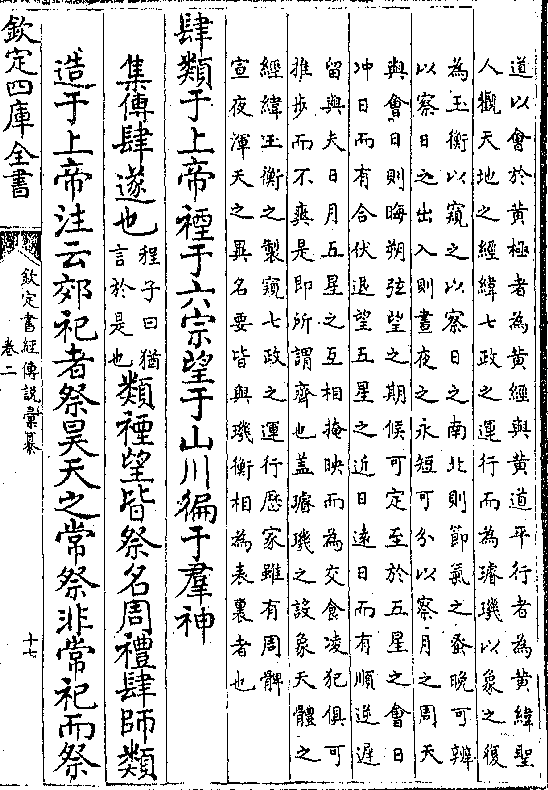 道以會於黄極者為黄經與黄道平行者為黄緯聖
人觀天地之經緯七政之運行而為璿璣以象之復
為玉衡以窺之以察日之南北則節氣之蚤晚可辨
以察日之出入則晝夜之永短可分以察月之周天
與會日則晦朔弦望之期候可定至於五星之會日
冲日而有合伏退望五星之近日遠日而有順逆遲
留與夫日月五星之互相掩映而為交食凌犯俱可
推步而不爽是即所謂齊也盖璿璣之設象天體之
經緯玉衡之製窺七政之運行歴家雖有周髀
宣夜渾天之異名要皆與璣衡相為表裏者也
肆類于上帝禋于六宗望于山川徧于羣神
集傳肆遂也程子曰猶言於是也類禋望皆祭名周禮肆師類
造于上帝注云郊祀者祭昊天之常祭非常祀而祭
欽定四庫全書
欽定書經傳說彙纂
卷二
十七